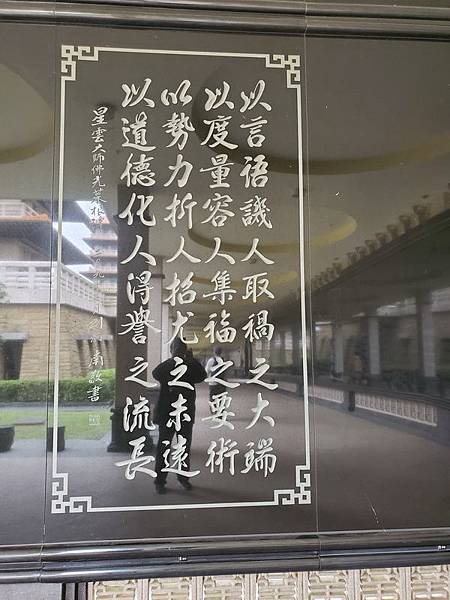 以言語譏人取禍之大端
以度量容人集福之要術
以勢力折人招尤之未遠
以道德化人得譽之流長
星雲大師佛光菜根譚 敬書